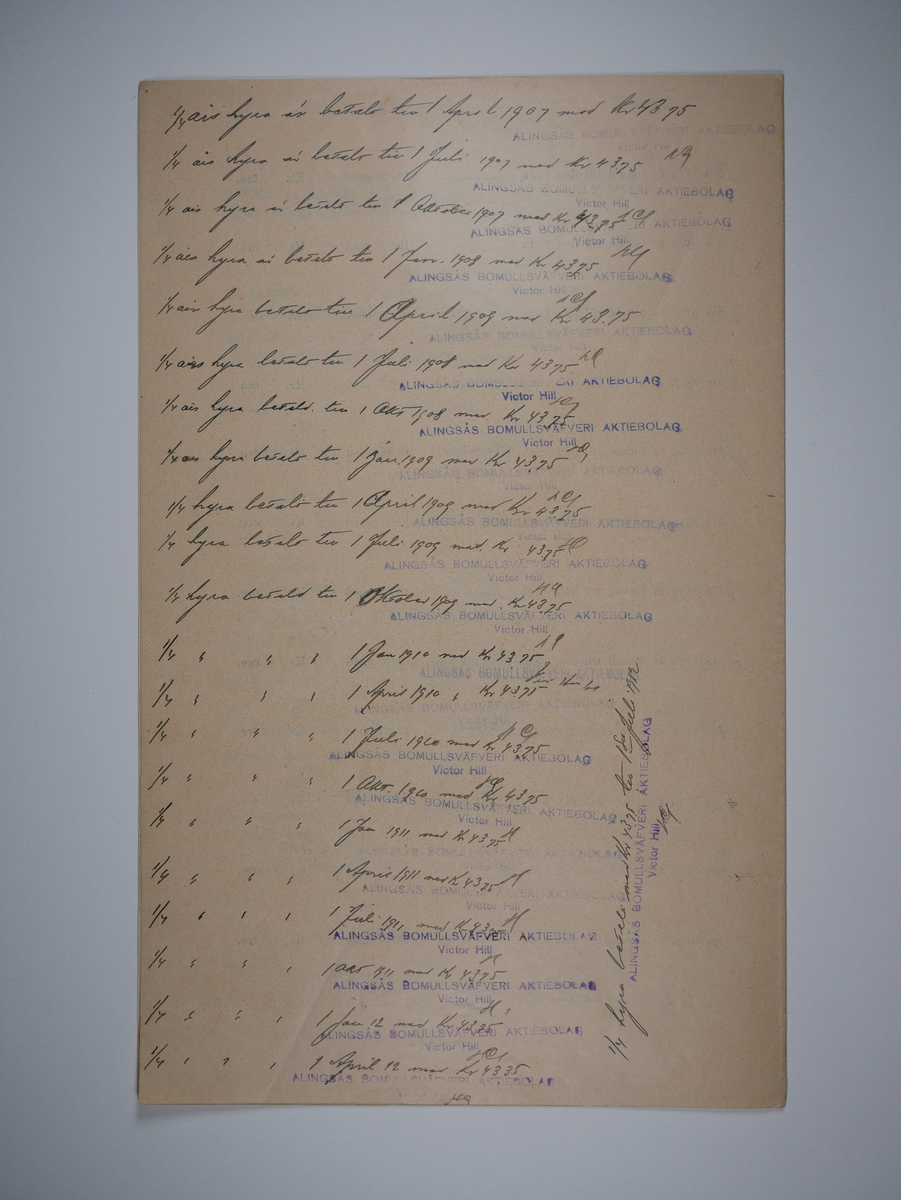 1/4 års hyra är betald till 1 April 1907 med Kr 43.75
ALINGSÅS BOMULLSVÄFVERI AKTIEBOLAG
Victor Hill
1/4 års hyra är betald till 1 Juli 1907 med Kr 43.75
ALINGSÅS BOMULLSVÄFVERI AKTIEBOLAG
Victor Hill
1/4 års hyra är betald till 1 Oktober 1907 med Kr 43.75
ALINGSÅS BOMULLSVÄFVERI AKTIEBOLAG
Victor Hill
1/4 års hyra är betald till 1 Janr. 1908 med Kr. 43.75
ALINGSÅS BOMULLSVÄFVERI AKTIEBOLAG
Victor Hill
1/4 års hyra betald till 1 April 1908 med Kr. 43.75
ALINGSÅS BOMULLSVÄFVERI AKTIEBOLAG
1/4 års hyra betald till 1 Juli 1908 med Kr 43.75
ALINGSÅS BOMULLSVÄFVERI AKTIEBOLAG
Victor Hill
1/4 års hyra betald. till 1 Okt 1908 med Kr 43.75
ALINGSÅS BOMULLSVÄFVERI AKTIEBOLAG
Victor Hill
1/4 års hyra betald till 1 Jan. 1909 med Kr 43.75
ALINGSÅS BOMULLSVÄFVERI AKTIEBOLAG
Victor Hill
1/4 hyra betald till 1 April 1909 med Kr 43.75
ALINGSÅS BOMULLSVÄFVERI AKTIEBOLAG
Victor Hill
1/4 hyra betald till 1 Juli 1909 med. Kr 43.75
ALINGSÅS BOMULLSVÄFVERI AKTIEBOLAG
Victor Hill
1/4 hyra betald till 1 Oktober 1909 med. Kr 43.75
ALINGSÅS BOMULLSVÄFVERI AKTIEBOLAG
Victor Hill
1/4 " " " 1 Jan 1910 med Kr 43.75
ALINGSÅS BOMULLSVÄFVERI AKTIEBOLAG
1/4 " " " 1 April 1910 " Kr 43.75
ALINGSÅS BOMULLSVÄFVERI AKTIEBOLAG
Victor Hill
1/4 " " " 1 Juli 1910 med Kr 43.75
ALINGSÅS BOMULLSVÄFVERI AKTIEBOLAG
Victor Hill
1/4 " " " 1 Okt. 1910 med Kr 43.75
ALINGSÅS BOMULLSVÄFVERI AKTIEBOLAG
Victor Hill
1/4 " " " 1 Jan 1911 med Kr 43.75
ALINGSÅS BOMULLSVÄFVERI AKTIEBOLAG
1/4 " " " 1 April 1911 med Kr 43.75
ALINGSÅS BOMULLSVÄFVERI AKTIEBOLAG
Victor Hill
1/4 " " " 1 Juli 1911 med Kr 43.75
ALINGSÅS BOMULLSVÄFVERI AKTIEBOLAG
Victor Hill
1/4 " " " 1 Okt 1911 med Kr 43.75
ALINGSÅS BOMULLSVÄFVERI AKTIEBOLAG
Victor Hill
1/4 " " " 1 Jan 12 med Kr 43.35
ALINGSÅS BOMULLSVÄFVERI AKTIEBOLAG
Victor Hill
1/4 " " " 1 April 12 med Kr 43.35
ALINGSÅS BOMULLSVÄFVERI AKTIEBOLAG
Victor Hill
1/4 hyra betald med Kr 43.75 till 1 Juli 1912
ALINGSÅS BOMULLSVÄFVERI AKTIEBOLAG
Victor Hill